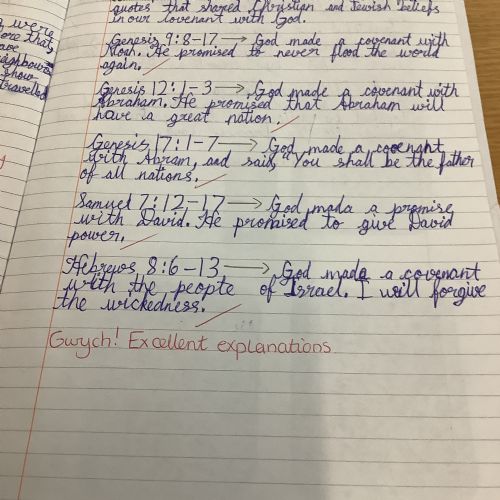 quotes that shared Christian and Jewish beliefs
in our covenant with God.
Genesis 9:8-17 → God made a covenant with
Noah. He promised to never flood the world
again.
Genesis 12:1-3 → God made a covenant with
Abraham. He promised that Abraham will
have a great nation.
Genesis 17:1-7 → God made a covenant
with Abram, and said, "You shall be the father
of all nations.
Samuel 7:12-17 → God mada a promise
with David. He promised to give David
power.
Hebrews 8:6-13 → God mada a covenant
with the people of Israel. I will forgive
the wickedness.
Gwych! Excellent explanations
were
that
show
travelled